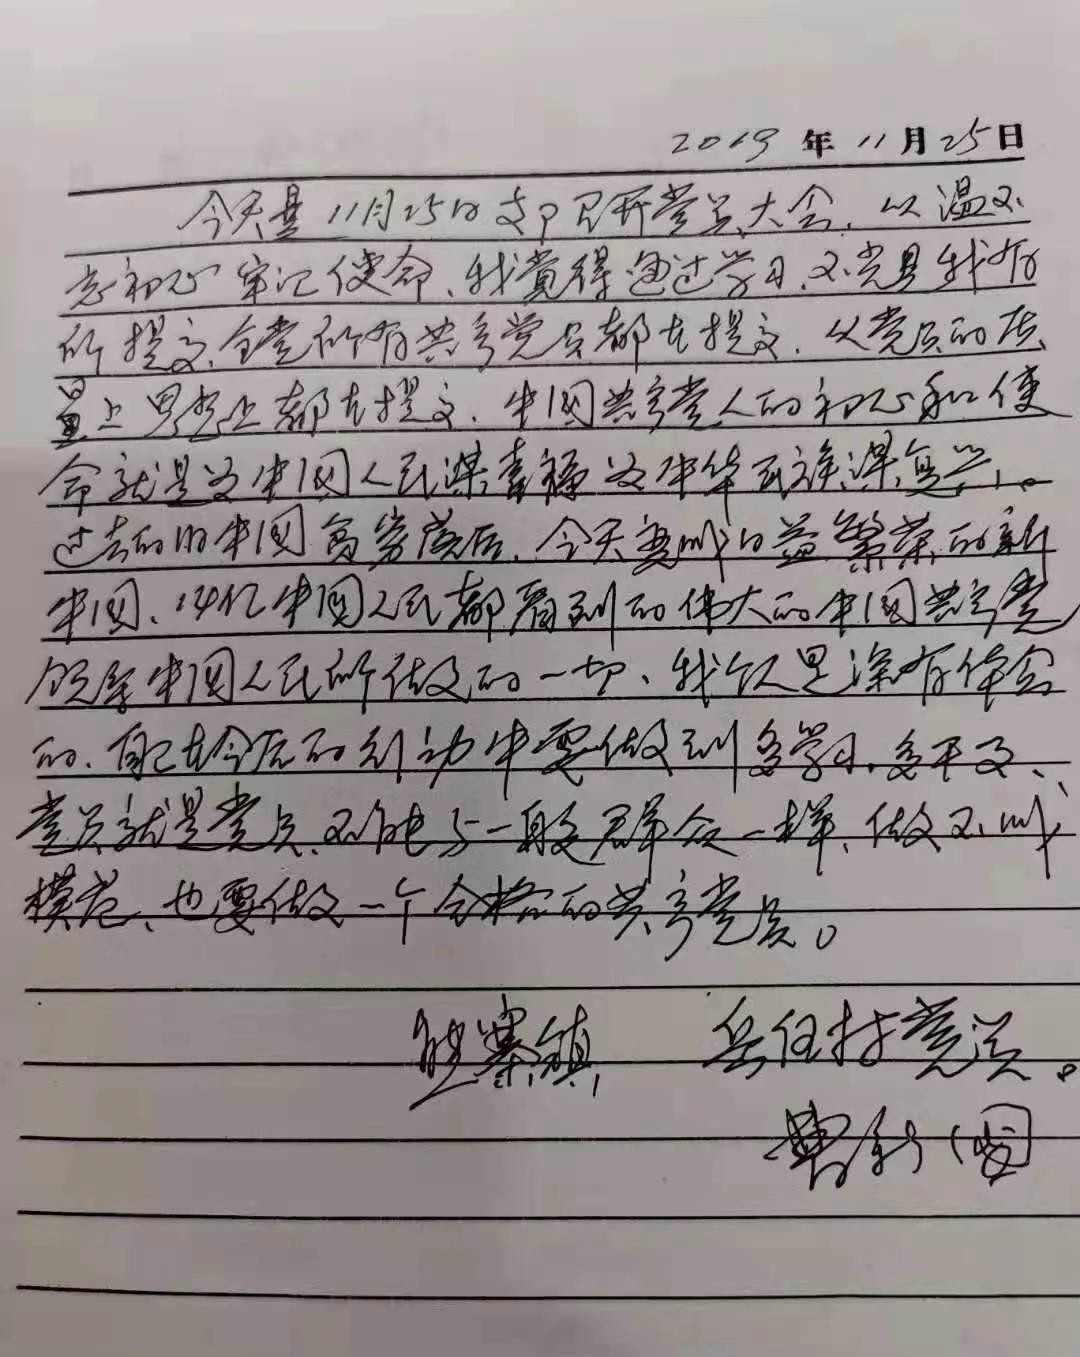 2019年11月25日
今天是11月25日支卩召开党员大会,以温不
忘初心牢记使命、我觉得通过学习,不光是我有
所提交,全党所有共产党员都在提交,从党员的质
量上思想上都在提交,中国共产党人的初心和使
命就是为中国人民谋幸福为中华民族谋复兴。
过去的旧中国贫穷落后,今天变成日益繁荣的新
中国,14亿中国人民都看到的伟大的中国共产党
领导中国人民所做的一切、我个人是深有体会
的,自己在今后的行动中要做到多学习,多干又、
党员就是党员,不能与一般群众一样,做不成
模范,也要做一个合格的共产党员。
镇 任村党员。